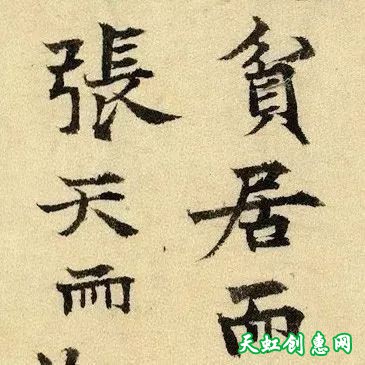 貧居
張天而
天虹创惠网